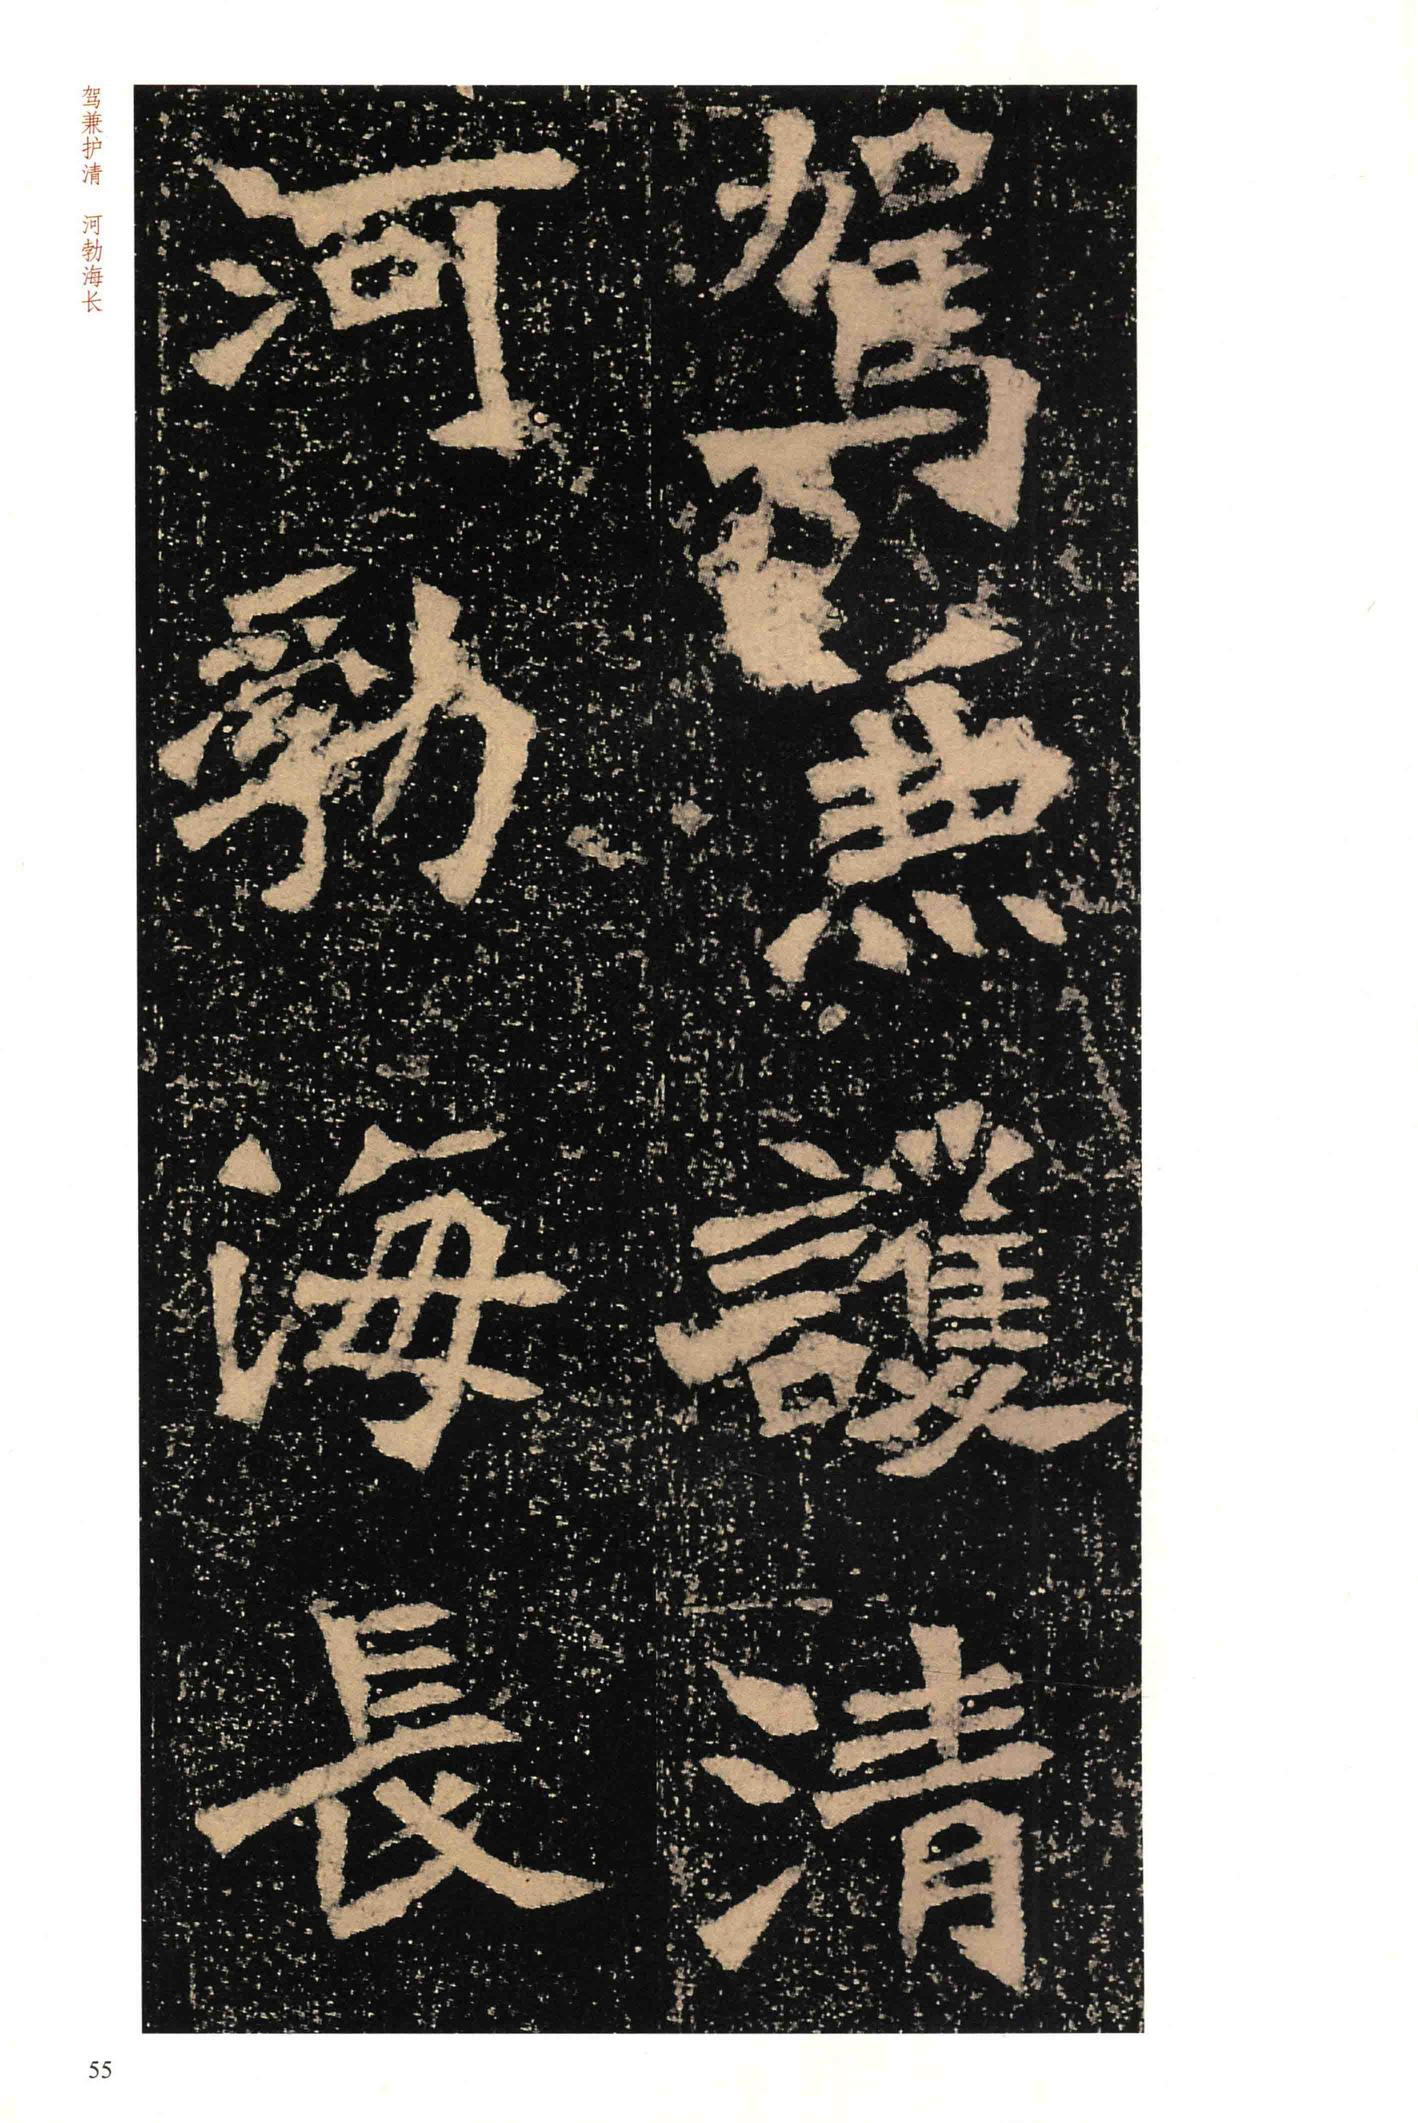 駕兼護清
河勃海長
驾兼护清 河勃海长
55